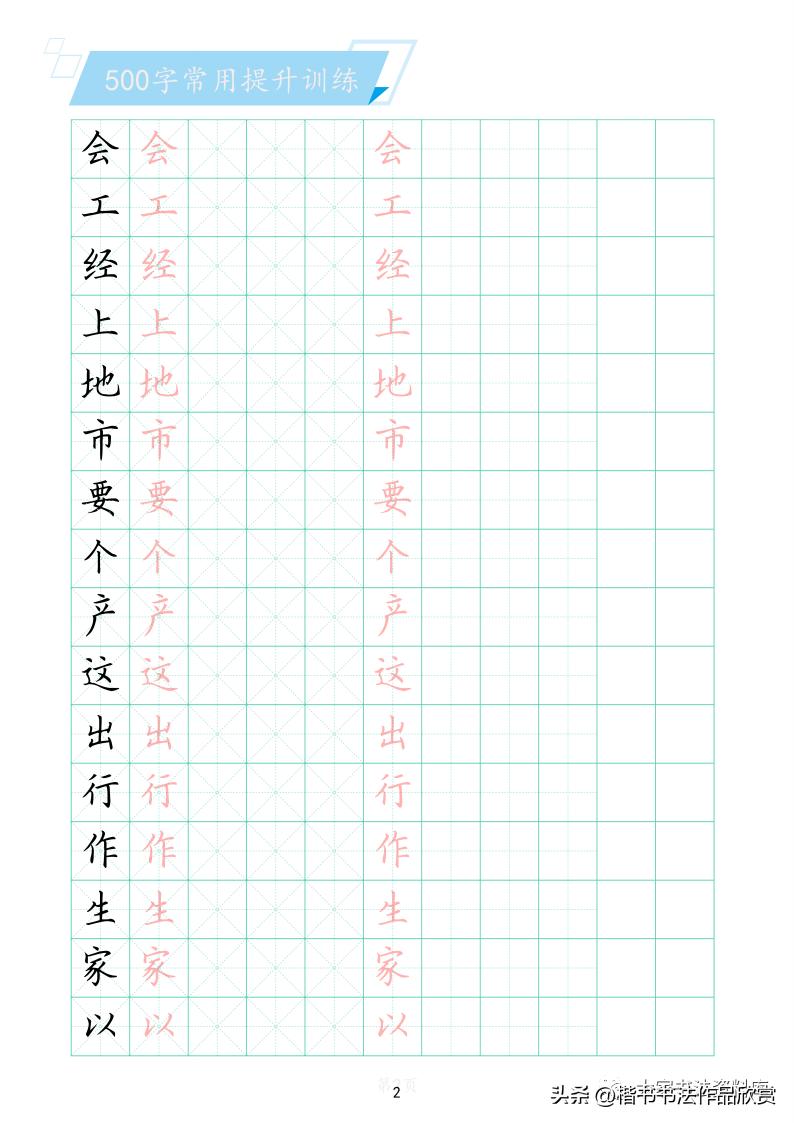 500字常用提升训练
会 会 会
工 工 工
经 经 经
上 上 上
地 地 地
市 市 市
要 要 要
个 个 个
产 产 产
这 这 这
出 出 出
行 行 行
作 作 作
生 生 生
家 家 家
以 以 以
第2页
2
头条 @楷书书法作品欣赏